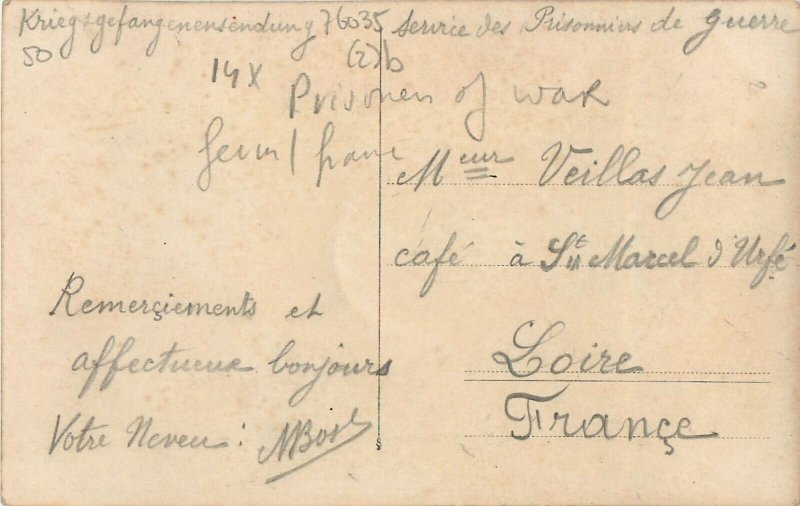 Kriegsgefangenensendung 76035 Service des Prisonniers de guerre
50
(2)b
14x
Prisoner of war
Meur Veillas Jean
café à St Marcel d'Urfé
Remerçiements et
affectueux bonjours
Votre Neveu :
Loire
Françe